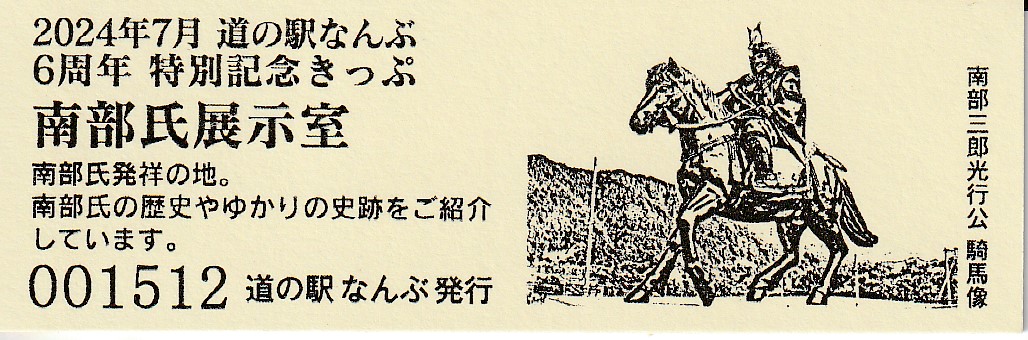 2024年7月 道の駅なんぶ
6周年 特別記念きっぷ
南部氏展示室
南部氏発祥の地。
南部氏の歴史やゆかりの史跡をご紹介
しています。
001512 道の駅なんぶ発行
南部三郎光行公 騎馬像